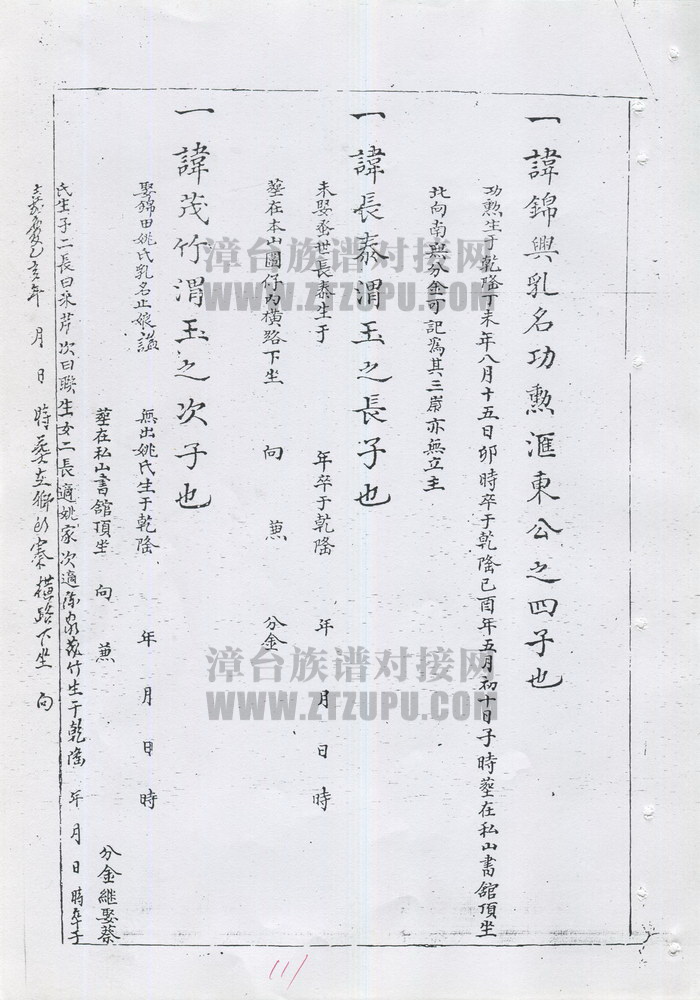 一諱錦興乳名功勲滙東公之四子也
功勲生于乾隆丁未年八月十五日卯時卒于乾隆己酉年五月初十日子時塟在私山書舘頂坐
北向南與分金可記為其三崩亦無立主
一諱長泰渭玉之長子也
未娶番世長泰生于 年卒于乾隆 年 月 日 時
塟在本山圆仔内橫路下坐 向 兼 分金
一諱茂竹渭玉之次子也
娶錦田姚氏乳名止娘謚 無出姚氏生于乾隆 年 月 日 時
塟在私山書舘頂坐 向 兼 分金継娶蔡
氏生子二長曰采芹次曰聨生女二長適姚家次適陈家茂竹生于乾隆 年 月 日 時卒于
嘉慶乙亥年 月 日 時塟在鄉 寮橫路下坐 向
漳台族谱对接网
WWW.ZTZUPU.COM
漳台族谱对接网
WWW.ZTZUPU.COM
111